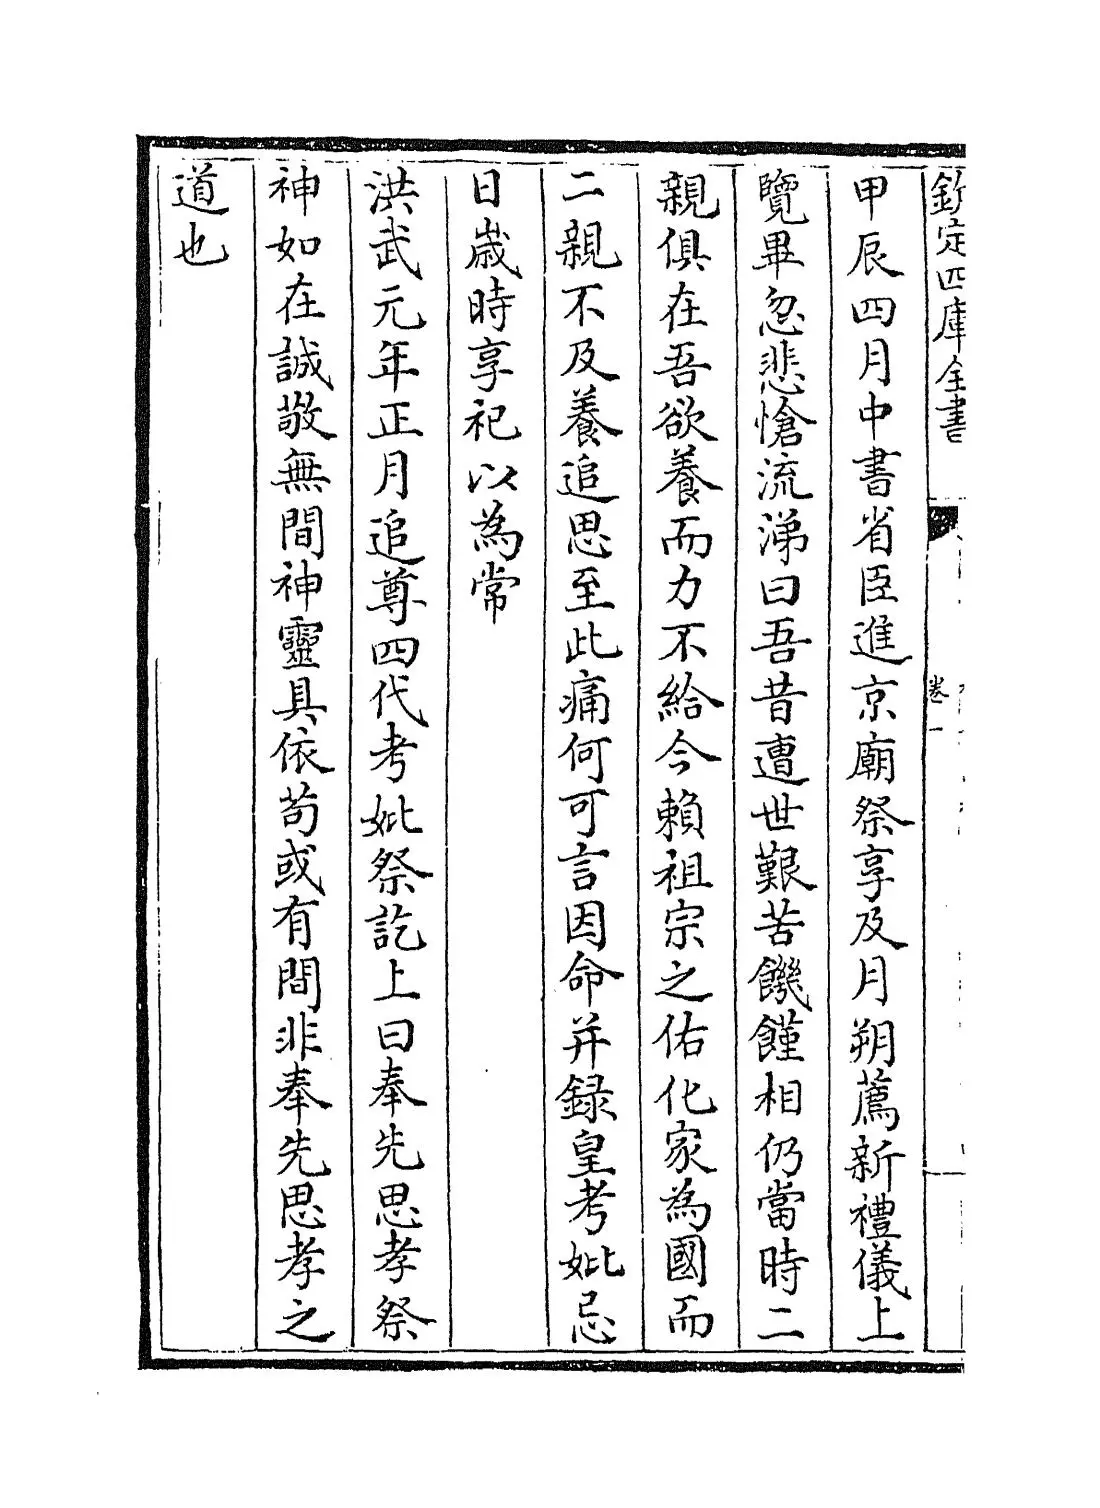 欽定四庫全書
卷一
甲辰四月中書省臣進京廟祭享及月朔薦新禮儀上
覽畢忽悲愴流涕曰吾昔遭世艱苦饑饉相仍當時二
親俱在吾欲養而力不給今賴祖宗之佑化家為國而
二親不及養追思至此痛何可言因命并録皇考妣忌
日歳時享祀以為常
洪武元年正月追尊四代考妣祭訖上曰奉先思孝祭
神如在誠敬無間神靈具依苟或有間非奉先思孝之
道也